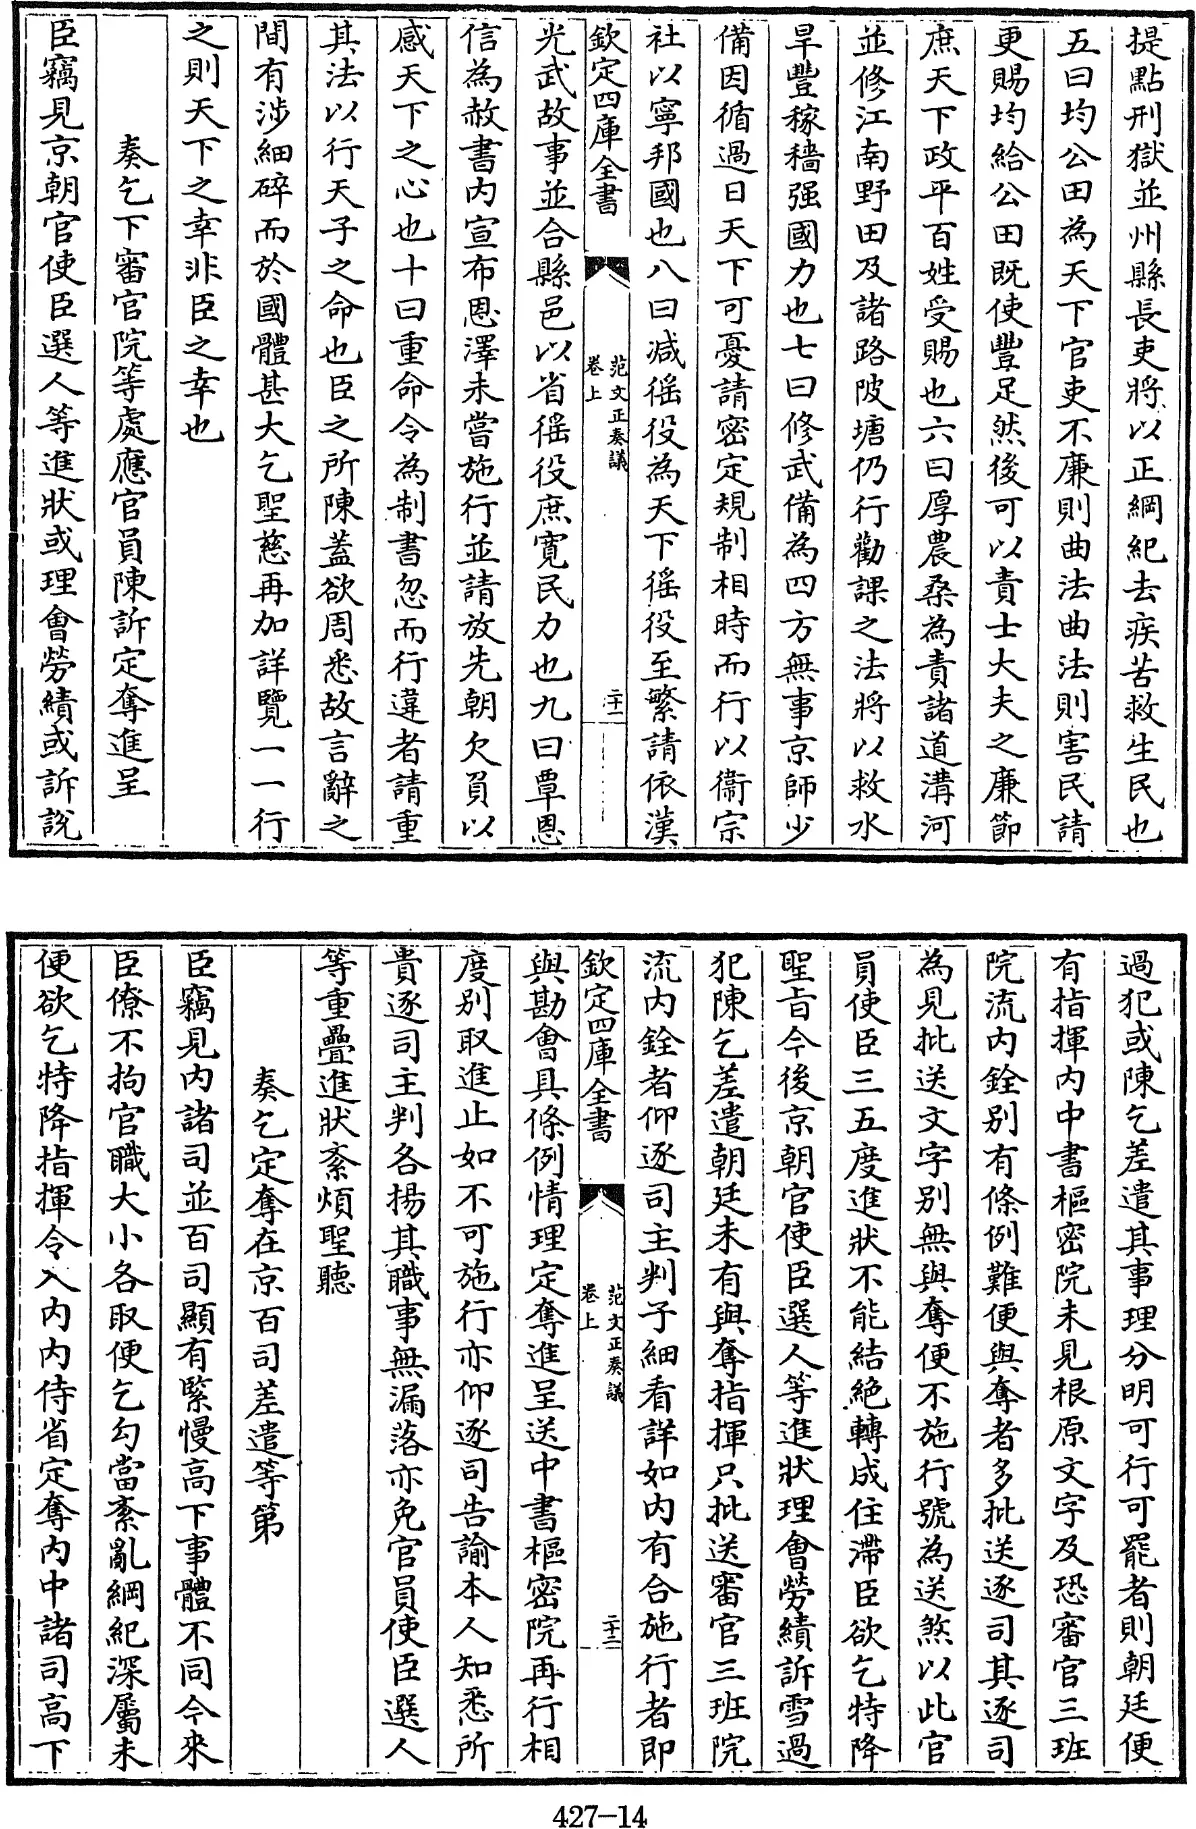 提點刑獄並州縣長吏將以正綱紀去疾苦救生民也
五曰均公田為天下官吏不廉則曲法曲法則害民請
更賜均給公田既使豐足然後可以責士大夫之廉節
庶天下政平百姓受賜也六曰厚農桑為責諸道溝河
並修江南野田及諸路陂塘仍行勸課之法將以救水
旱豐稼穡强國力也七曰修武備為四方無事京師少
備因循過日天下可憂請密定規制相時而行以衞宗
社以寧邦國也八曰减徭役為天下徭役至繁請依漢
欽定四庫全書
范文正奏議
卷上
二十一
光武故事並合縣邑以省徭役庶寛民力也九曰覃恩
信為赦書内宣布恩澤未嘗施行並請放先朝欠負以
感天下之心也十曰重命令為制書忽而行違者請重
其法以行天子之命也臣之所陳蓋欲周悉故言辭之
間有涉細碎而於國體甚大乞聖慈再加詳覽一一行
之則天下之幸非臣之幸也
奏乞下審官院等處應官員陳訴定奪進呈
臣竊見京朝官使臣選人等進狀或理會勞績或訴說
過犯或陳乞差遣其事理分明可行可罷者則朝廷便
有指揮内中書樞密院未見根原文字及恐審官三班
院流内銓别有條例難便與奪者多批送逐司其逐司
為見批送文字别無與奪便不施行號為送煞以此官
員使臣三五度進狀不能結絶轉成住滯臣欲乞特降
聖旨今後京朝官使臣選人等進狀理會勞績訴雪過
犯陳乞差遣朝廷未有與奪指揮只批送審官三班院
流内銓者仰逐司主判子細看詳如内有合施行者即
欽定四庫全書
范文正奏議
卷上
二十二
與勘會具條例情理定奪進呈送中書樞密院再行相
度别取進止如不可施行亦仰逐司告諭本人知悉所
貴逐司主判各揚其職事無漏落亦免官員使臣選人
等重疊進狀紊煩聖聽
奏乞定奪在京百司差遣等第
臣竊見内諸司並百司顯有緊慢高下事體不同今來
臣僚不拘官職大小各取便乞勾當紊亂綱紀深屬未
便欲乞特降指揮令入内内侍省定奪内中諸司高下
427-14